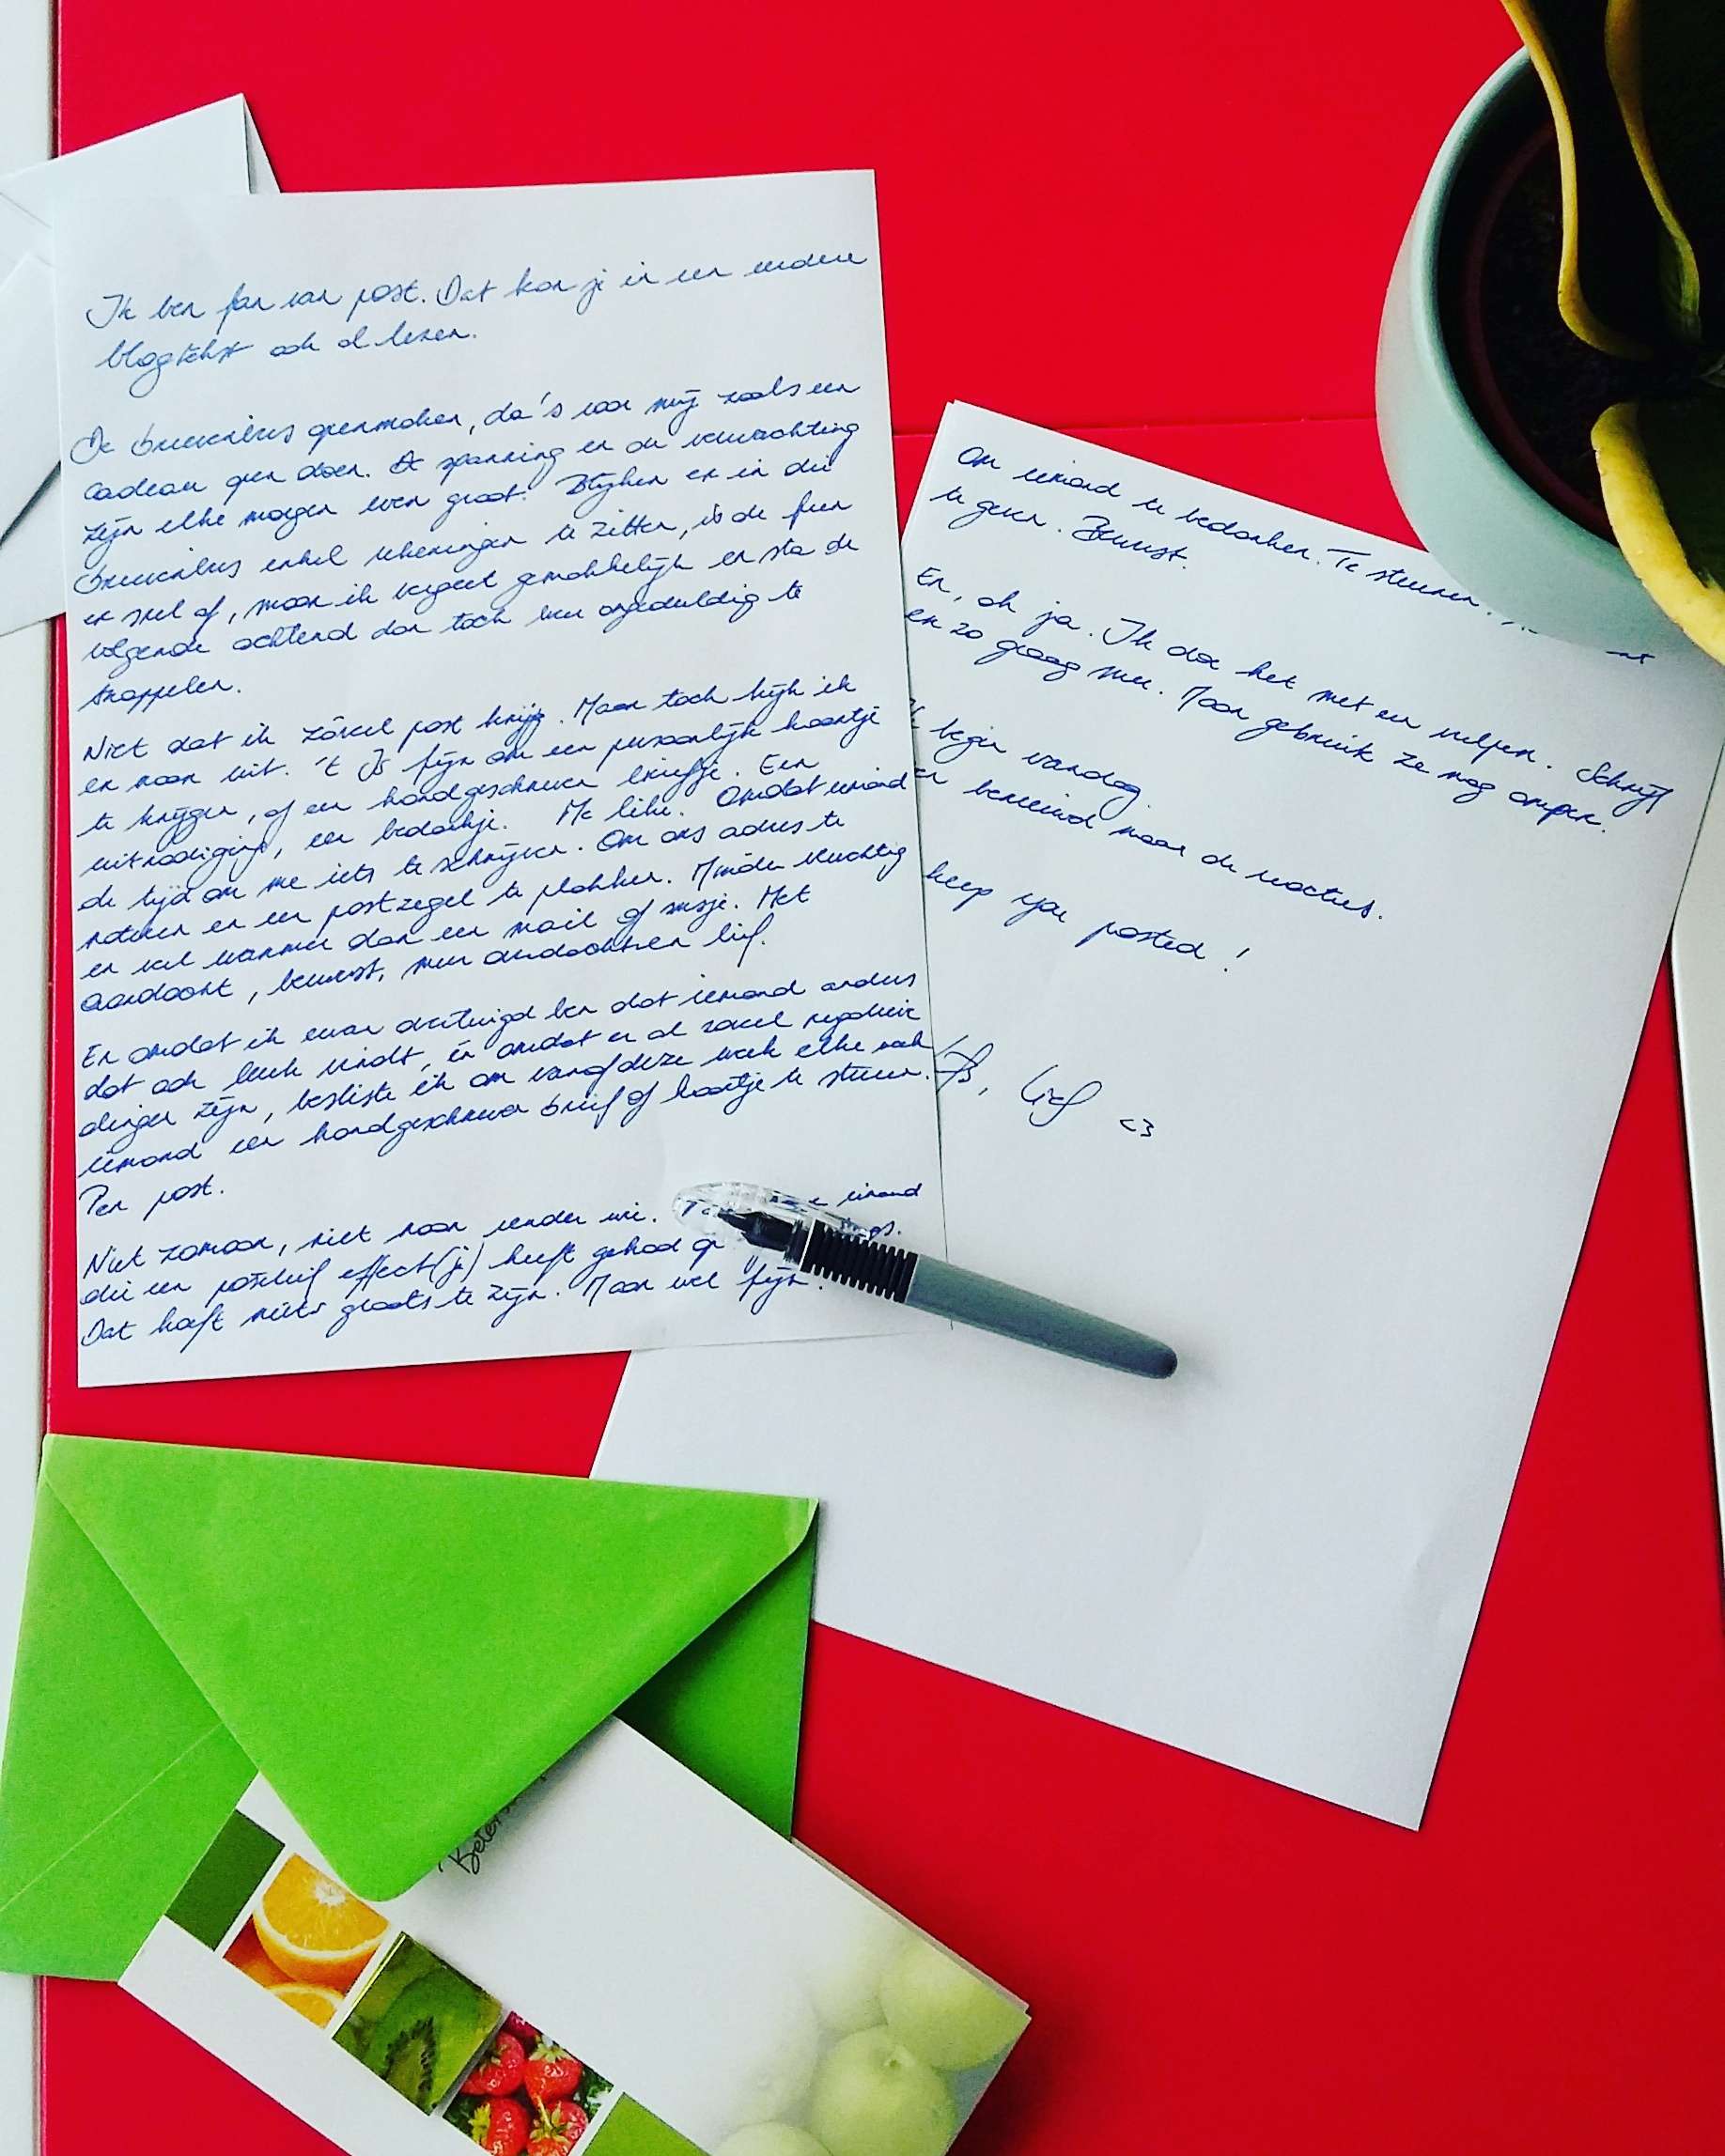 Ik ben fan van post. Dat kon je in een eerdere
blogtekst ook al lezen.
De brievenbus openmaken, da's voor mij zoals een
cadeau open doen. De spanning en de verwachting
zijn elke morgen even groot. Blijken er in die
brievenbus enkel rekeningen te zitten, is de fun
er snel af, maar ik vergeet gemakkelijk en sta de
volgende ochtend dan toch weer ongeduldig te
trappelen.
Niet dat ik zóveel post krijg. Maar toch kijk ik
er naar uit. 't Is fijn om een persoonlijk kaartje
te krijgen, of een handgeschreven briefje. Een
uitnodiging, een bedankje. Me like. Omdat iemand
de tijd om me iets te schrijven. Om ons adres te
noteren en een postzegel te plakken. Minder vluchtig
en veel warmer dan een mail of smsje. Met
aandacht, bewust, meer aandacht en lief.
En omdat ik ervan overtuigd ben dat iemand anders
dat ook leuk vindt, én omdat er al zoveel negatieve
dingen zijn, besliste ik om vanaf deze week elke week
iemand een handgeschreven brief of kaartje te sturen.
Per post.
Niet zomaar, niet naar eender wie. iemand
die een positief effect(je) heeft gehad op
Dat hoeft niets groots te zijn. Maar wel fijn.
Om iemand te bedanken. Te steunen.
te geven. Bewust.
En, oh ja. Ik doe het met een vulpen. Schrijf
er zo graag mee. Maar gebruik ze nog amper.
begin vandag.
benieuwd naar de reacties.
keep you posted!
, Lief <3